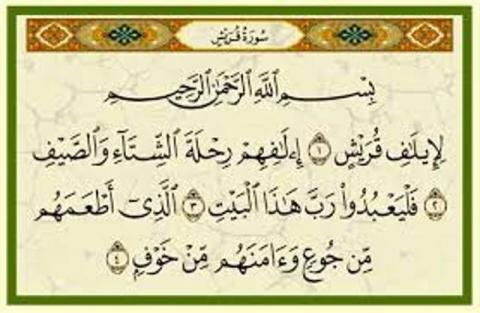 سُورَةُ قُرَيْشٍ
بِسْمِ اللَّهِ الرَّحْمَٰنِ الرَّحِيمِ
لِإِيلَافِ قُرَيْشٍ ١ إِۦلَافِهِمْ رِحْلَةَ الشِّتَآءِ وَالصَّيْفِ
٢ فَلْيَعْبُدُوا۟ رَبَّ هَٰذَا الْبَيْتِ ٣ الَّذِىٓ أَطْعَمَهُم
مِّن جُوعٍ وَءَامَنَهُم مِّنْ خَوْفٍ ٤